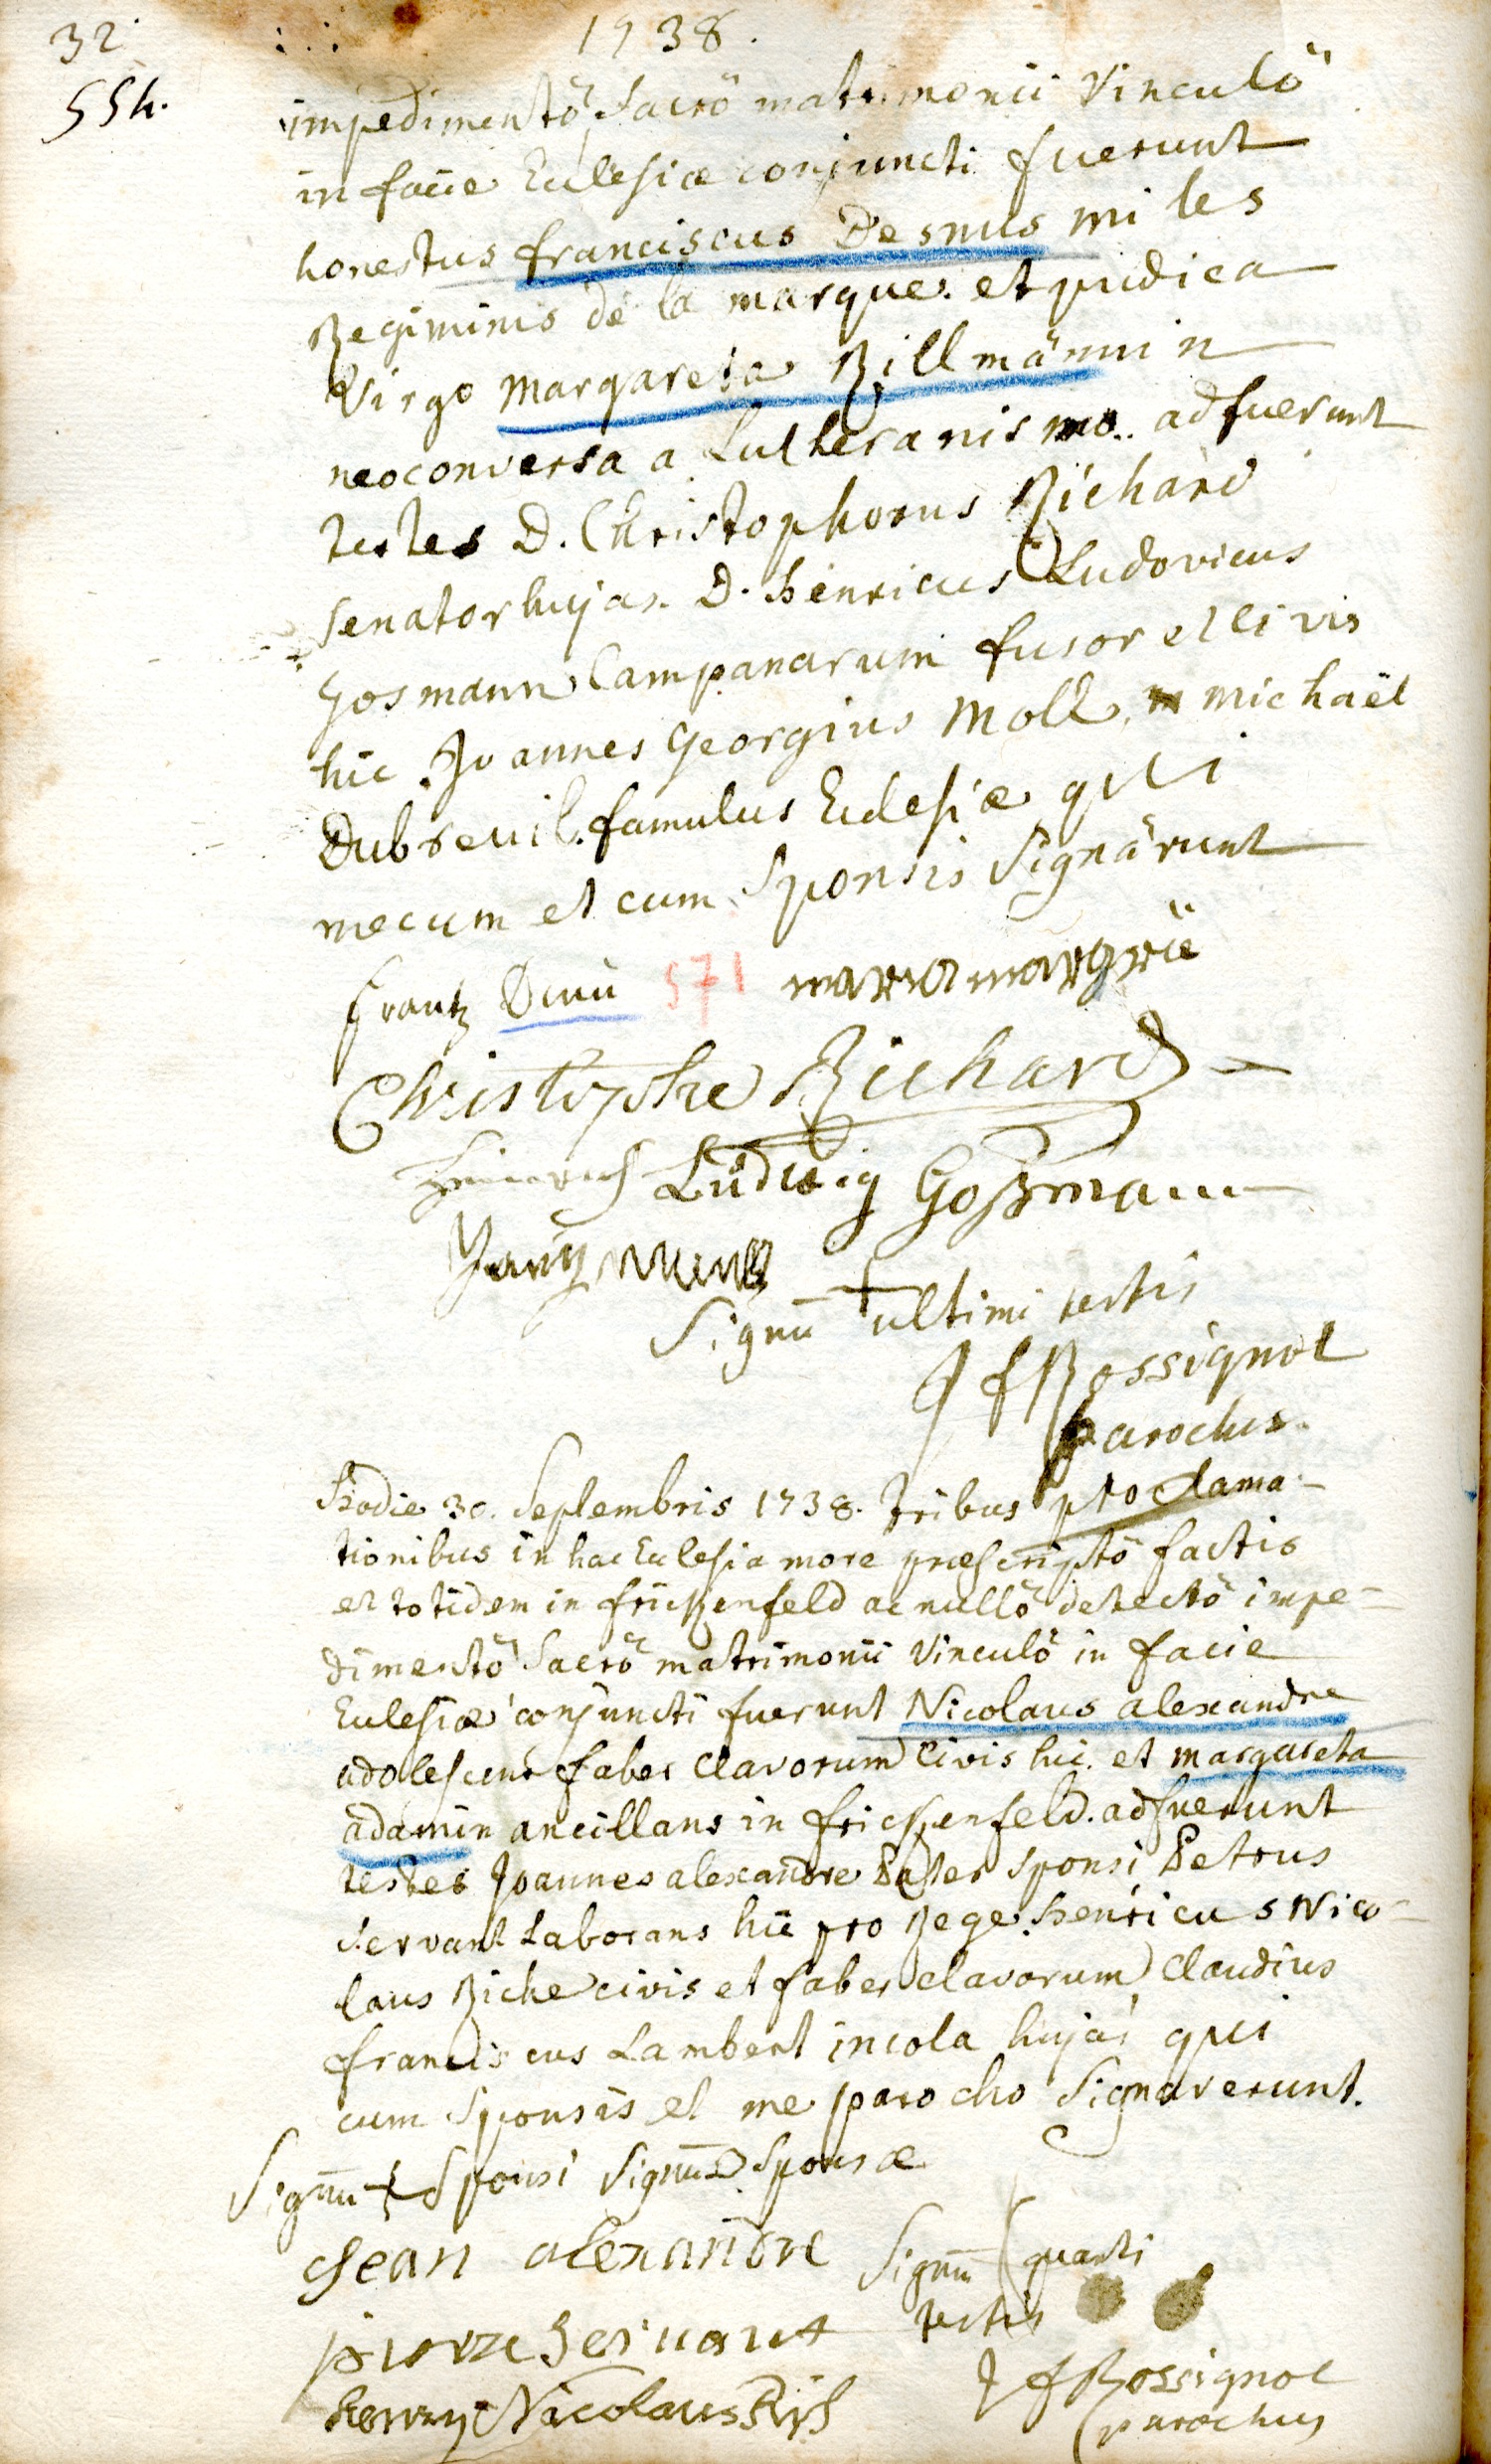 32
1738.
554.
impedimentô, Sacrô matrimonii Vinculô
in facie Eclesiæ conjuncti fuerunt
honestus franciscus Desmus miles
Regiminis de la marque. et pudica
Virgo Margareta Billmännin
neoconversa a Lutheranismo. adfuerunt
testes D. Christophorus Richard
senator hujas. D. henricus Ludovicus
Gosmann Campanarum fusor et civis
hic. Joannes Georgius Moll, michaël
Dubreuil. famulus Eclesiæ qui
mecum et cum Sponsis Signârunt
frantz 571 maria margrit
Christophe Richard
Heinrich Ludwig Goßmann
Signū + ultimi testis
J f Rossignol
parochus.
Hodie 30. Septembris 1738. tribus proclama-
tionibus in hac Eclesia more præscriptô factis
et totidem in frickenfeld ac nullô detectô impe-
dimentô Sacrô matrimonii Vinculô in facie
Eclesiæ conjuncti fuerunt Nicolaus alexandre
adolescens faber clavorum civis hic. et margareta
adamin ancillans in frickenfeld. adfuerunt
testes Joannes alexandre Pater sponsi, Petrus
Servant Laborans hic pro Rege. henricus Nico-
laus Riche civis et faber clavorum, Claudius
franciscus Lambert incola hujas qui
cum Sponsis et me parocho Signaverunt.
Signū + Sponsi Signū Sponsæ
Jean alexandre Signū quarti
testis
pierre servant
henry Nicolaus Rich
J f Rossignol
parochus